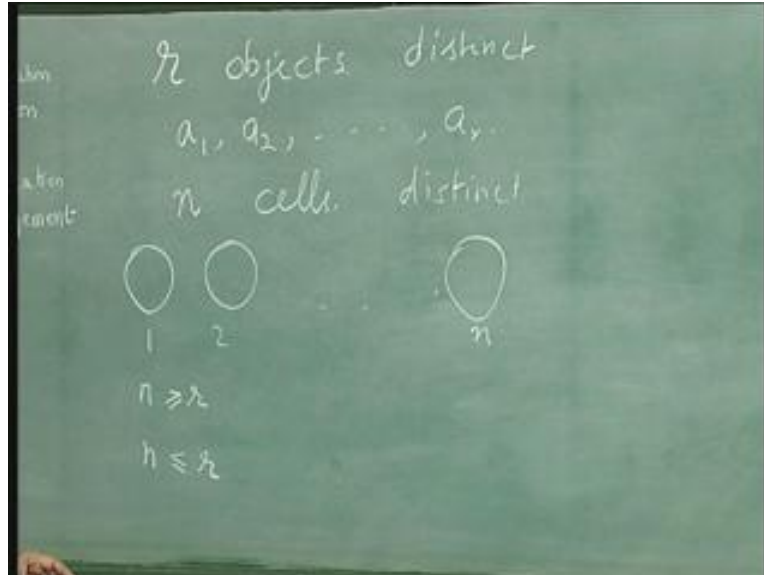 r objects distinct
a₁, a₂, . . . . , aᵣ.
n cells. distinct
1 2 . . . n
n ≥ r
n ≤ r
ement